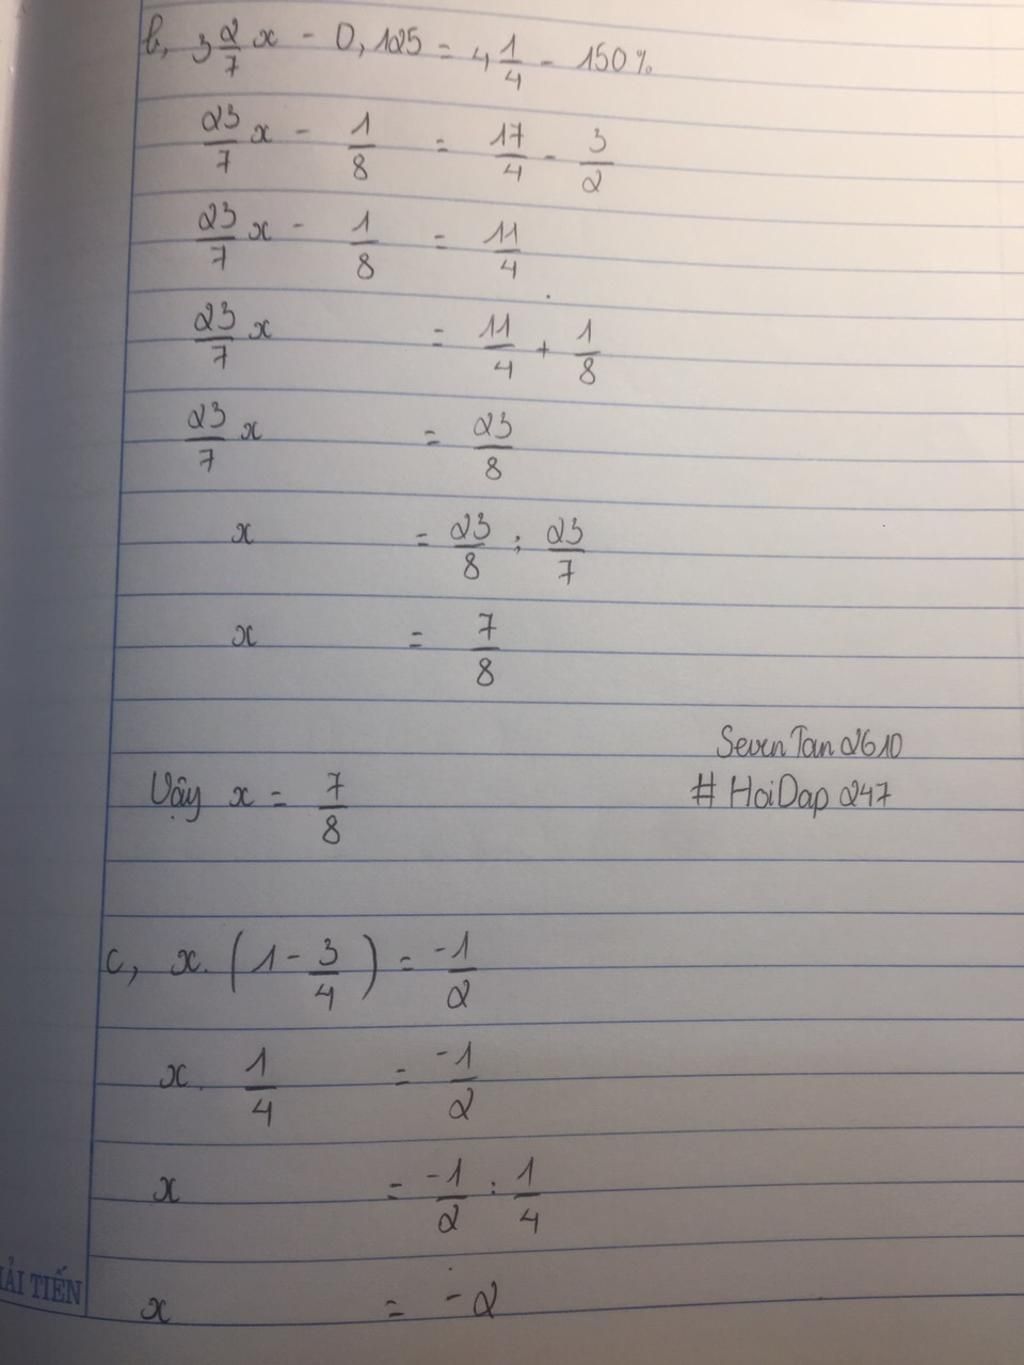 b, 3 2/7 x - 0,125 = 4 1/4 - 150%
23/7 x - 1/8 = 17/4 - 3/2
23/7 x - 1/8 = 11/4
23/7 x = 11/4 + 1/8
23/7 x = 23/8
x = 23/8 : 23/7
x = 7/8
SevenTan2610
Vậy x = 7/8 # HoiDap247
c, x. (1 - 3/4) = -1/2
x. 1/4 = -1/2
x = -1/2 : 1/4
x = -2
ẢI TIẾN